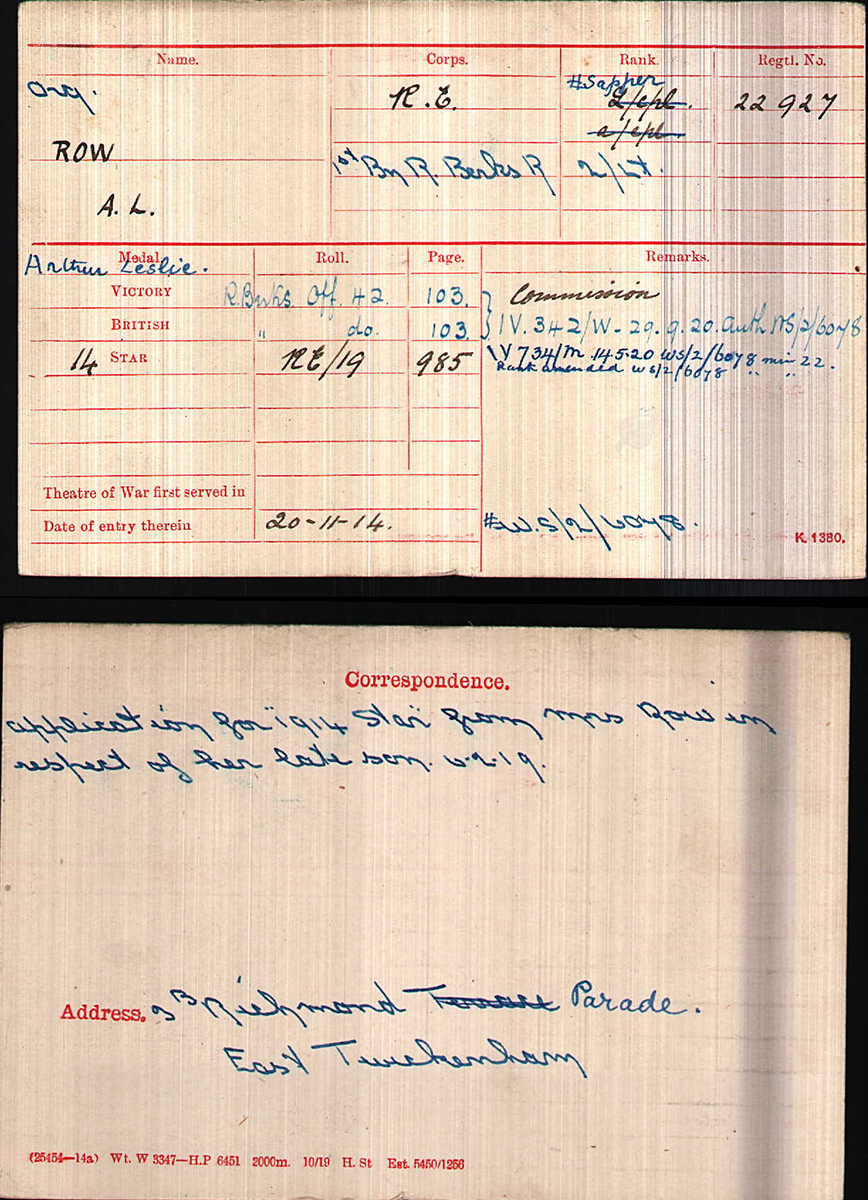 Name. Corps. Rank. Regtl. No.
Orig. R.E. #Sapper 22927
L/cpl.
a/cpl.
ROW 1st Bn R. Berks R 2/Lt.
A. L.
Arthur Leslie.
Medal. Roll. Page. Remarks.
VICTORY R.Berks Off. 42. 103. Commission
BRITISH " do. 103. IV. 342/W - 29.9.20. Auth WS/2/6078
14 STAR RE/19 985 IV 734/M 14.5.20 WS/2/6078 min 22.
Rank amended WS/2/6078 " "
Theatre of War first served in
Date of entry therein 20-11-14. #W.S/2/6078.
K. 1380.
Correspondence.
application for "1914 Star" from Mrs Row in
respect of her late son. 6.2.19.
Address. 3B Richmond Terrace Parade.
East Twickenham
(25454—14a) Wt. W 3347—H.P 6451 2000m. 10/19 H. St Est. 5450/1256